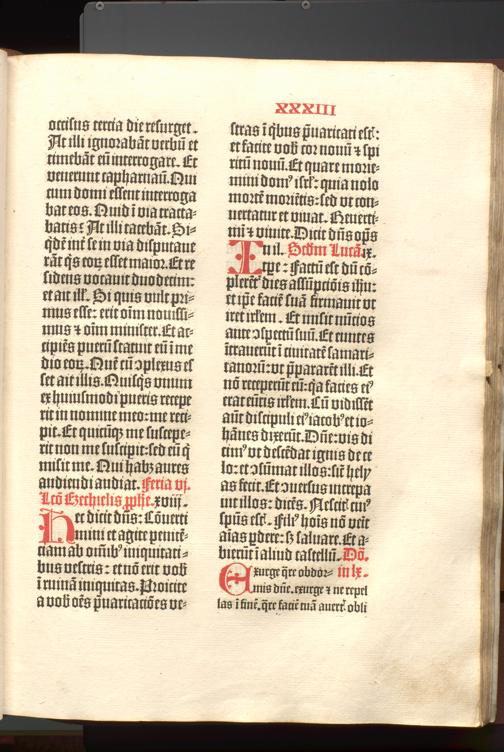 XXXIII
occisus tertia die resurget.
At illi ignorabāt verbū et
timebāt eū interrogare. Et
venerunt capharnaū. Qui
cum domi essent interroga
bat eos. Quid ī via tracta-
batis: At illi tacebāt. Si-
qdē int̄ se in via disputaue
rāt qs eoꝝ esset maior. Et re
sidens vocauit duodecim:
et ait ill'. Si quis vult pri-
mus esse: erit oīm nouissi-
mus ⁊ oīm minister. Et ac-
cipiēs puerū statuit eū ī me
dio eoꝝ. Quē cū ↄplexus es
set ait illis. Quisqs vnum
ex huiusmodi pueris recepe
rit in nomine meo: me reci-
pit. Et quicūqꝫ me suscepe-
rit non me suscipit: sed eū q
misit me. Qui habꝫ aures
audiendi audiat. Feria vj.
Lcō Ezechielis pphe. xviij.
Hec dicit dn̄s: Cōuerti
mini et agite penitē-
ciam ab oīnibꝰ iniquitati-
bus vestris: et nō erit vob̄
ī ruinā iniquitas. Proicite
a vob̄ oēs p̄uaricatiōes ve-
stras ī qbus p̄uaricati estꝭ:
et facite vob̄ cor nouū ⁊ spi
ritū nouū. Et quare morie-
mini domꝰ isrl': quia nolo
mortē moriētis: sed vt con-
uertatur et viuat. Reuerti-
mī ⁊ viuite. Dicit dn̄s op̄s
In il. Scdm Lucā ix.
rpe: Factū est dū cō-
plerētꝰ dies assūptiōis ihu:
et ip̄e faciē suā firmauit vt
iret irlēm. Et misit nūcios
ante ↄspectū suū. Et euntes
ītrauerūt ī ciuitatē samari-
tanorū: vt p̄pararēt illi. Et
nō receperūt eū: qa facies eiꝰ
erat eūtis irlēm. Cū vidissēt
aūt discipuli eiꝰ iacobꝰ et io-
hānes dixerūt. Dn̄e: vis di
cimꝰ vt descēdat ignis de ce
lo: et ↄsūmat illos: sic̄ hely
as fecit. Et ↄuersus increpa
uit illos: dicēs. Nescitꝭ cuiꝰ
spūs estꝭ. Filiꝰ hoīs nō veīt
aīas pdere: sꝫ saluare. Et a-
bierūt ī aliud castellū. Dō.
Exurge qre obdor- in lx.
mis dn̄e. exurge ⁊ ne repel
las ī finē. qre faciē tuā auertꝭ obli